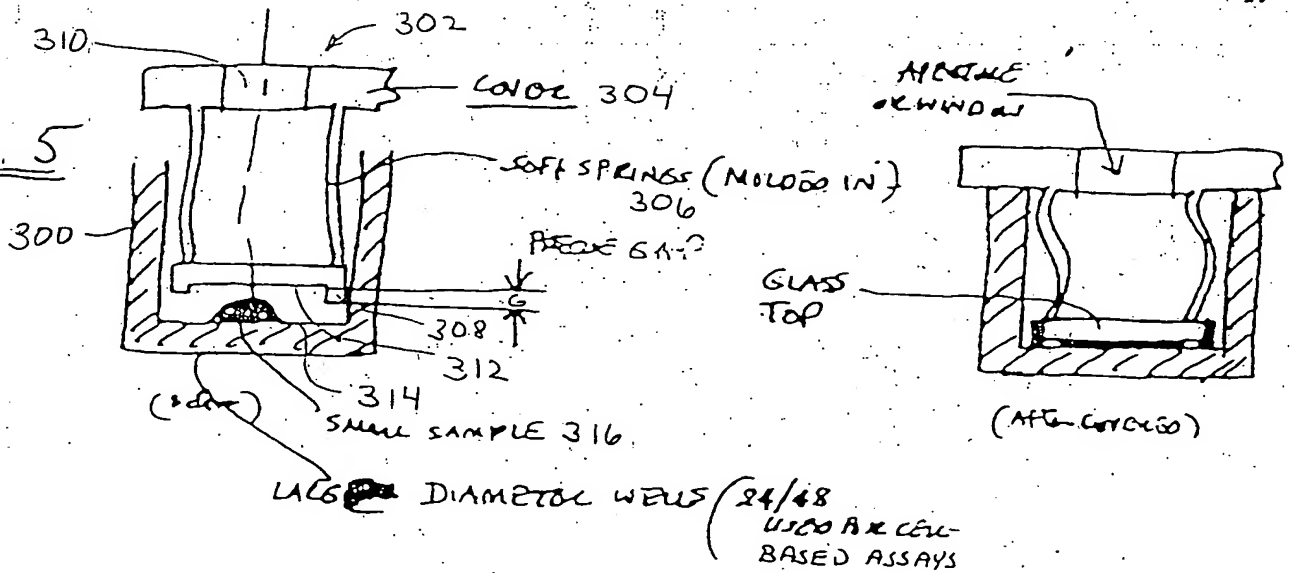 310
302
COVOR 304
. 5
SOFT SPRINGS (MOLDED IN)
306
300
G
308
312
314
SMALL SAMPLE 316
DIAMETOR WELLS (24/48
USED FOR CELL-
BASED ASSAYS
APERTURE
OR WINDOW
GLASS
TOP
(AFTER COVERED)